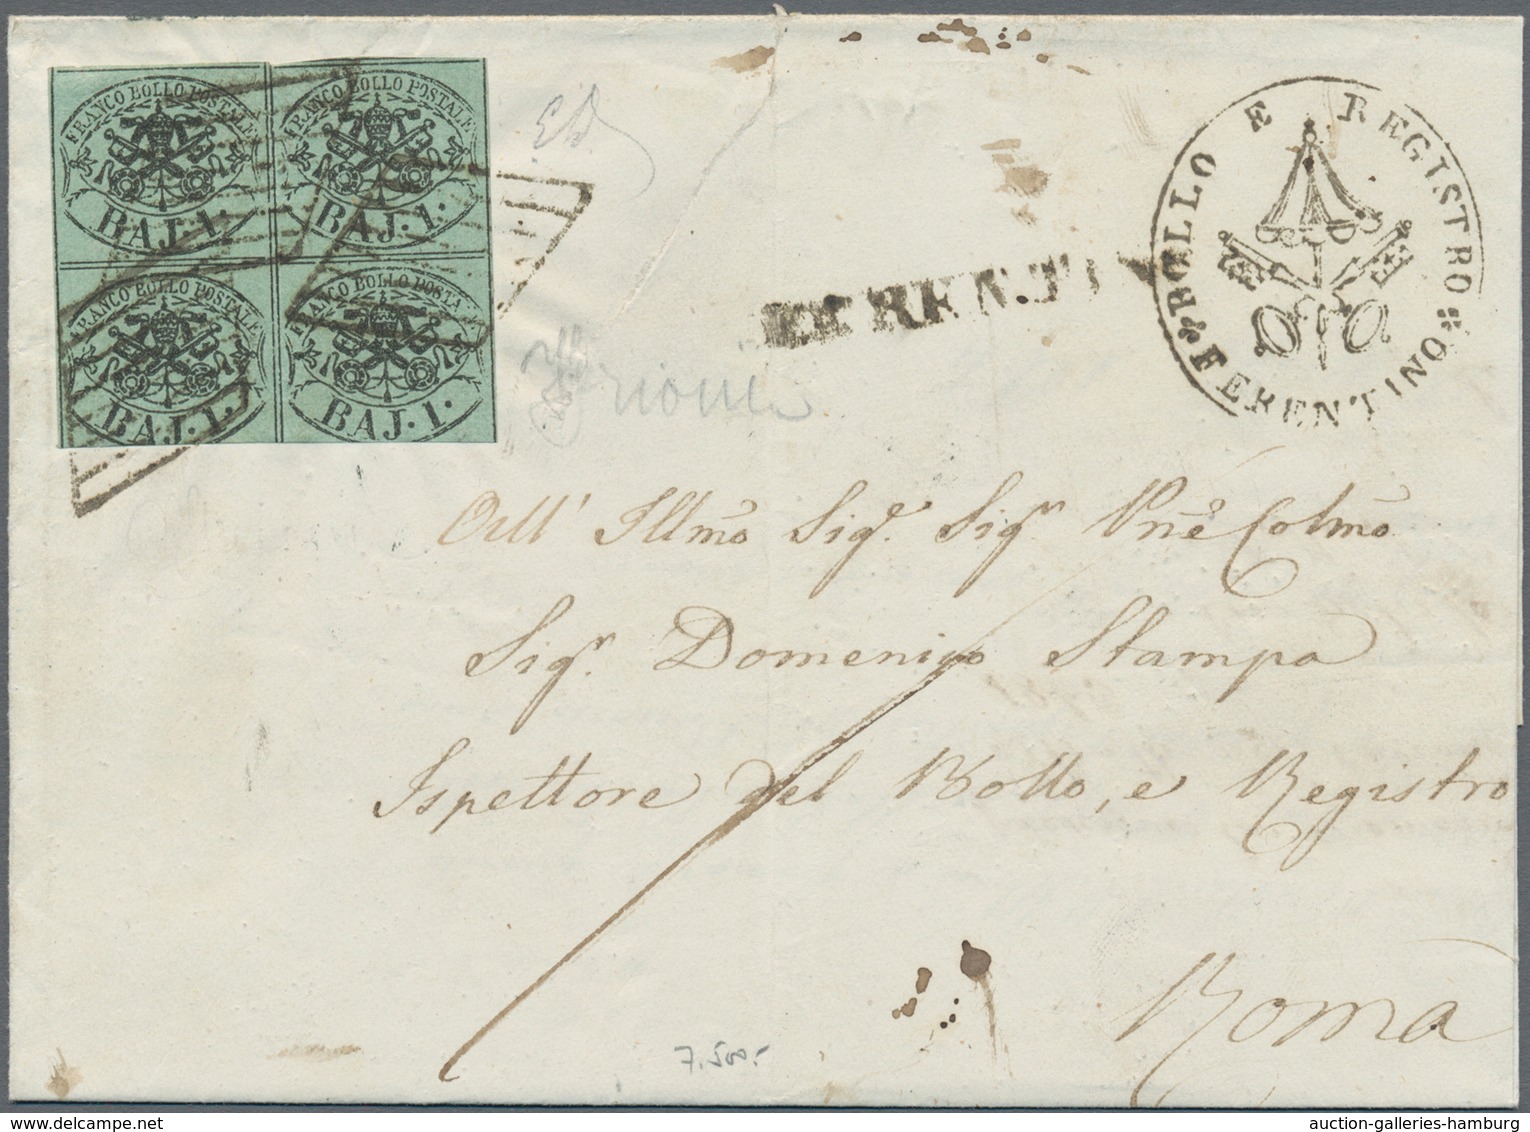 FRANCO BOLLO POSTALE
BAJ. 1.
FRANCO BOLLO POSTALE
BAJ. 1.
FRANCO BOLLO POSTALE
BAJ. 1.
FRANCO BOLLO POSTALE
BAJ. 1.
BOLLO E REGISTRO
FERENTINO
All' Illmo Sigr. Sigr Pne Colmo
Sigr. Domenico Stampa
Ispettore del Bollo, e Registro
Roma
7.500.-
auction-galleries-hamburg